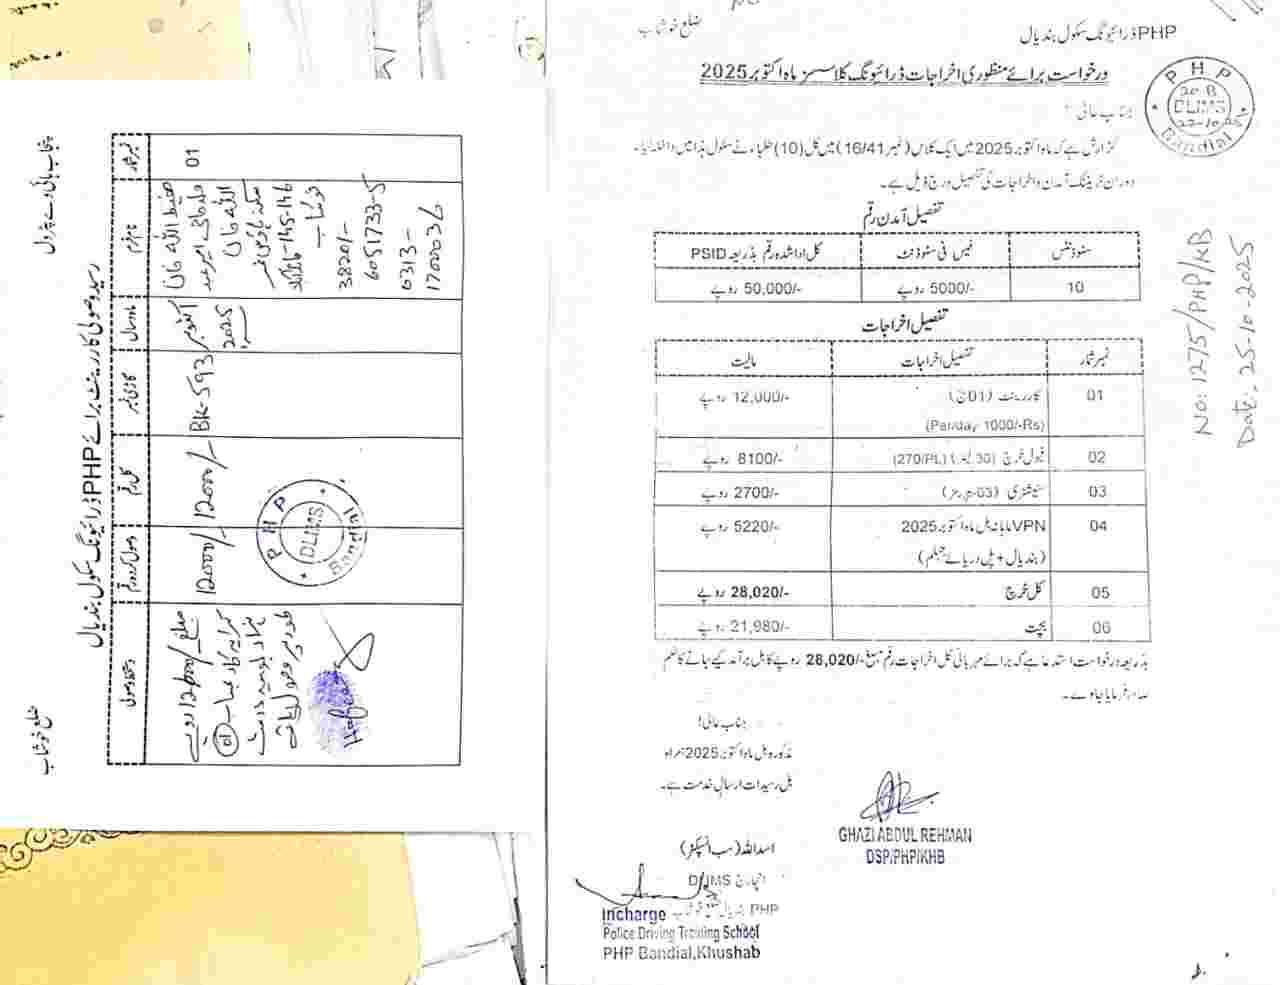 PHP ڈرائیونگ سکول بندیال
ضلع خوشاب
درخواست برائے منظوری اخراجات ڈرائیونگ کلاسسز ماہ اکتوبر 2025
PHP
20 B
DLIMS
22-10-25
Bandial
جناب عالی!
گزارش ہے کہ ماہ اکتوبر 2025 میں ایک کلاس (نمبر 16/41) میں کل (10) طلباء نے سکول ہذا میں داخلہ لیا۔
دوران ٹریننگ آمدن و اخراجات کی تفصیل درج ذیل ہے۔
تفصیل آمدن رقم
سٹوڈنٹس	فیس فی سٹوڈنٹ	کل اداشدہ رقم بذریعہ PSID
10	5000/- روپے	50,000/- روپے
تفصیل اخراجات
نمبر شمار	تفصیل اخراجات	مالیت
01	کار رینٹ (01 ج)	12,000/- روپے
(Per/day 1000/-Rs)
02	فیول خرچ (30 لیٹر) (270/PL)	8100/- روپے
03	سٹیشنری	2700/- روپے
04	VPN ماہانہ بل ماہ اکتوبر 2025	5220/- روپے
(بندیال + پل دریائے جہلم)
05	کل خرچ	28,020/- روپے
06	بچت	21,980/- روپے
بذریعہ درخواست استدعا ہے کہ برائے مہربانی کل اخراجات رقم مبلغ 28,020/- روپے کا بل برآمد کیے جانے کا حکم
صادر فرمایا جاوے۔
جناب عالی!
مذکورہ بل ماہ اکتوبر 2025 ہمراہ
بل رسیدات ارسال خدمت ہے۔
GHAZI ABDUL REHMAN
DSP/PHP/KHB
اسد اللہ (سب انسپکٹر)
انچارج DLIMS
PHP بندیال ضلع خوشاب
Incharge
Police Driving Training School
PHP Bandial, Khushab
No: 1275/PHP/KB
Date:. 25-10-2025
پنجاب ہائی وے پٹرول
ضلع خوشاب
رسید وصولی کار رینٹ برائے PHP ڈرائیونگ سکول بندیال
نمبر شمار	نام فرم	ماہ و سال	گاڑی نمبر	کل رقم	وصول کردہ رقم	دستخط وصولی
01
حفیظ اللہ خان
اللہ خان
خوشاب
38201-
6051733-5
0313-
1700036
اکتوبر
2025
BK-593
12000/-
12000/-
مبلغ 12000/ روپے
طور پر وصول پائے
Hafeez
PHP
DLIMS
Bandial